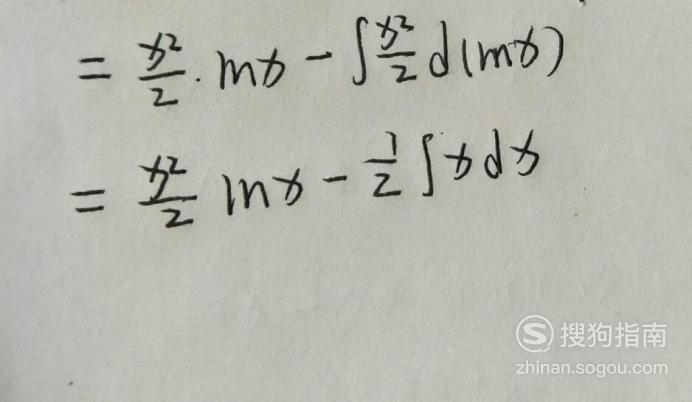 = x²/2 · lnx - ∫ x²/2 d(lnx)
= x²/2 lnx - 1/2 ∫ x dx
S 搜狗指南
zhinan.sogou.com